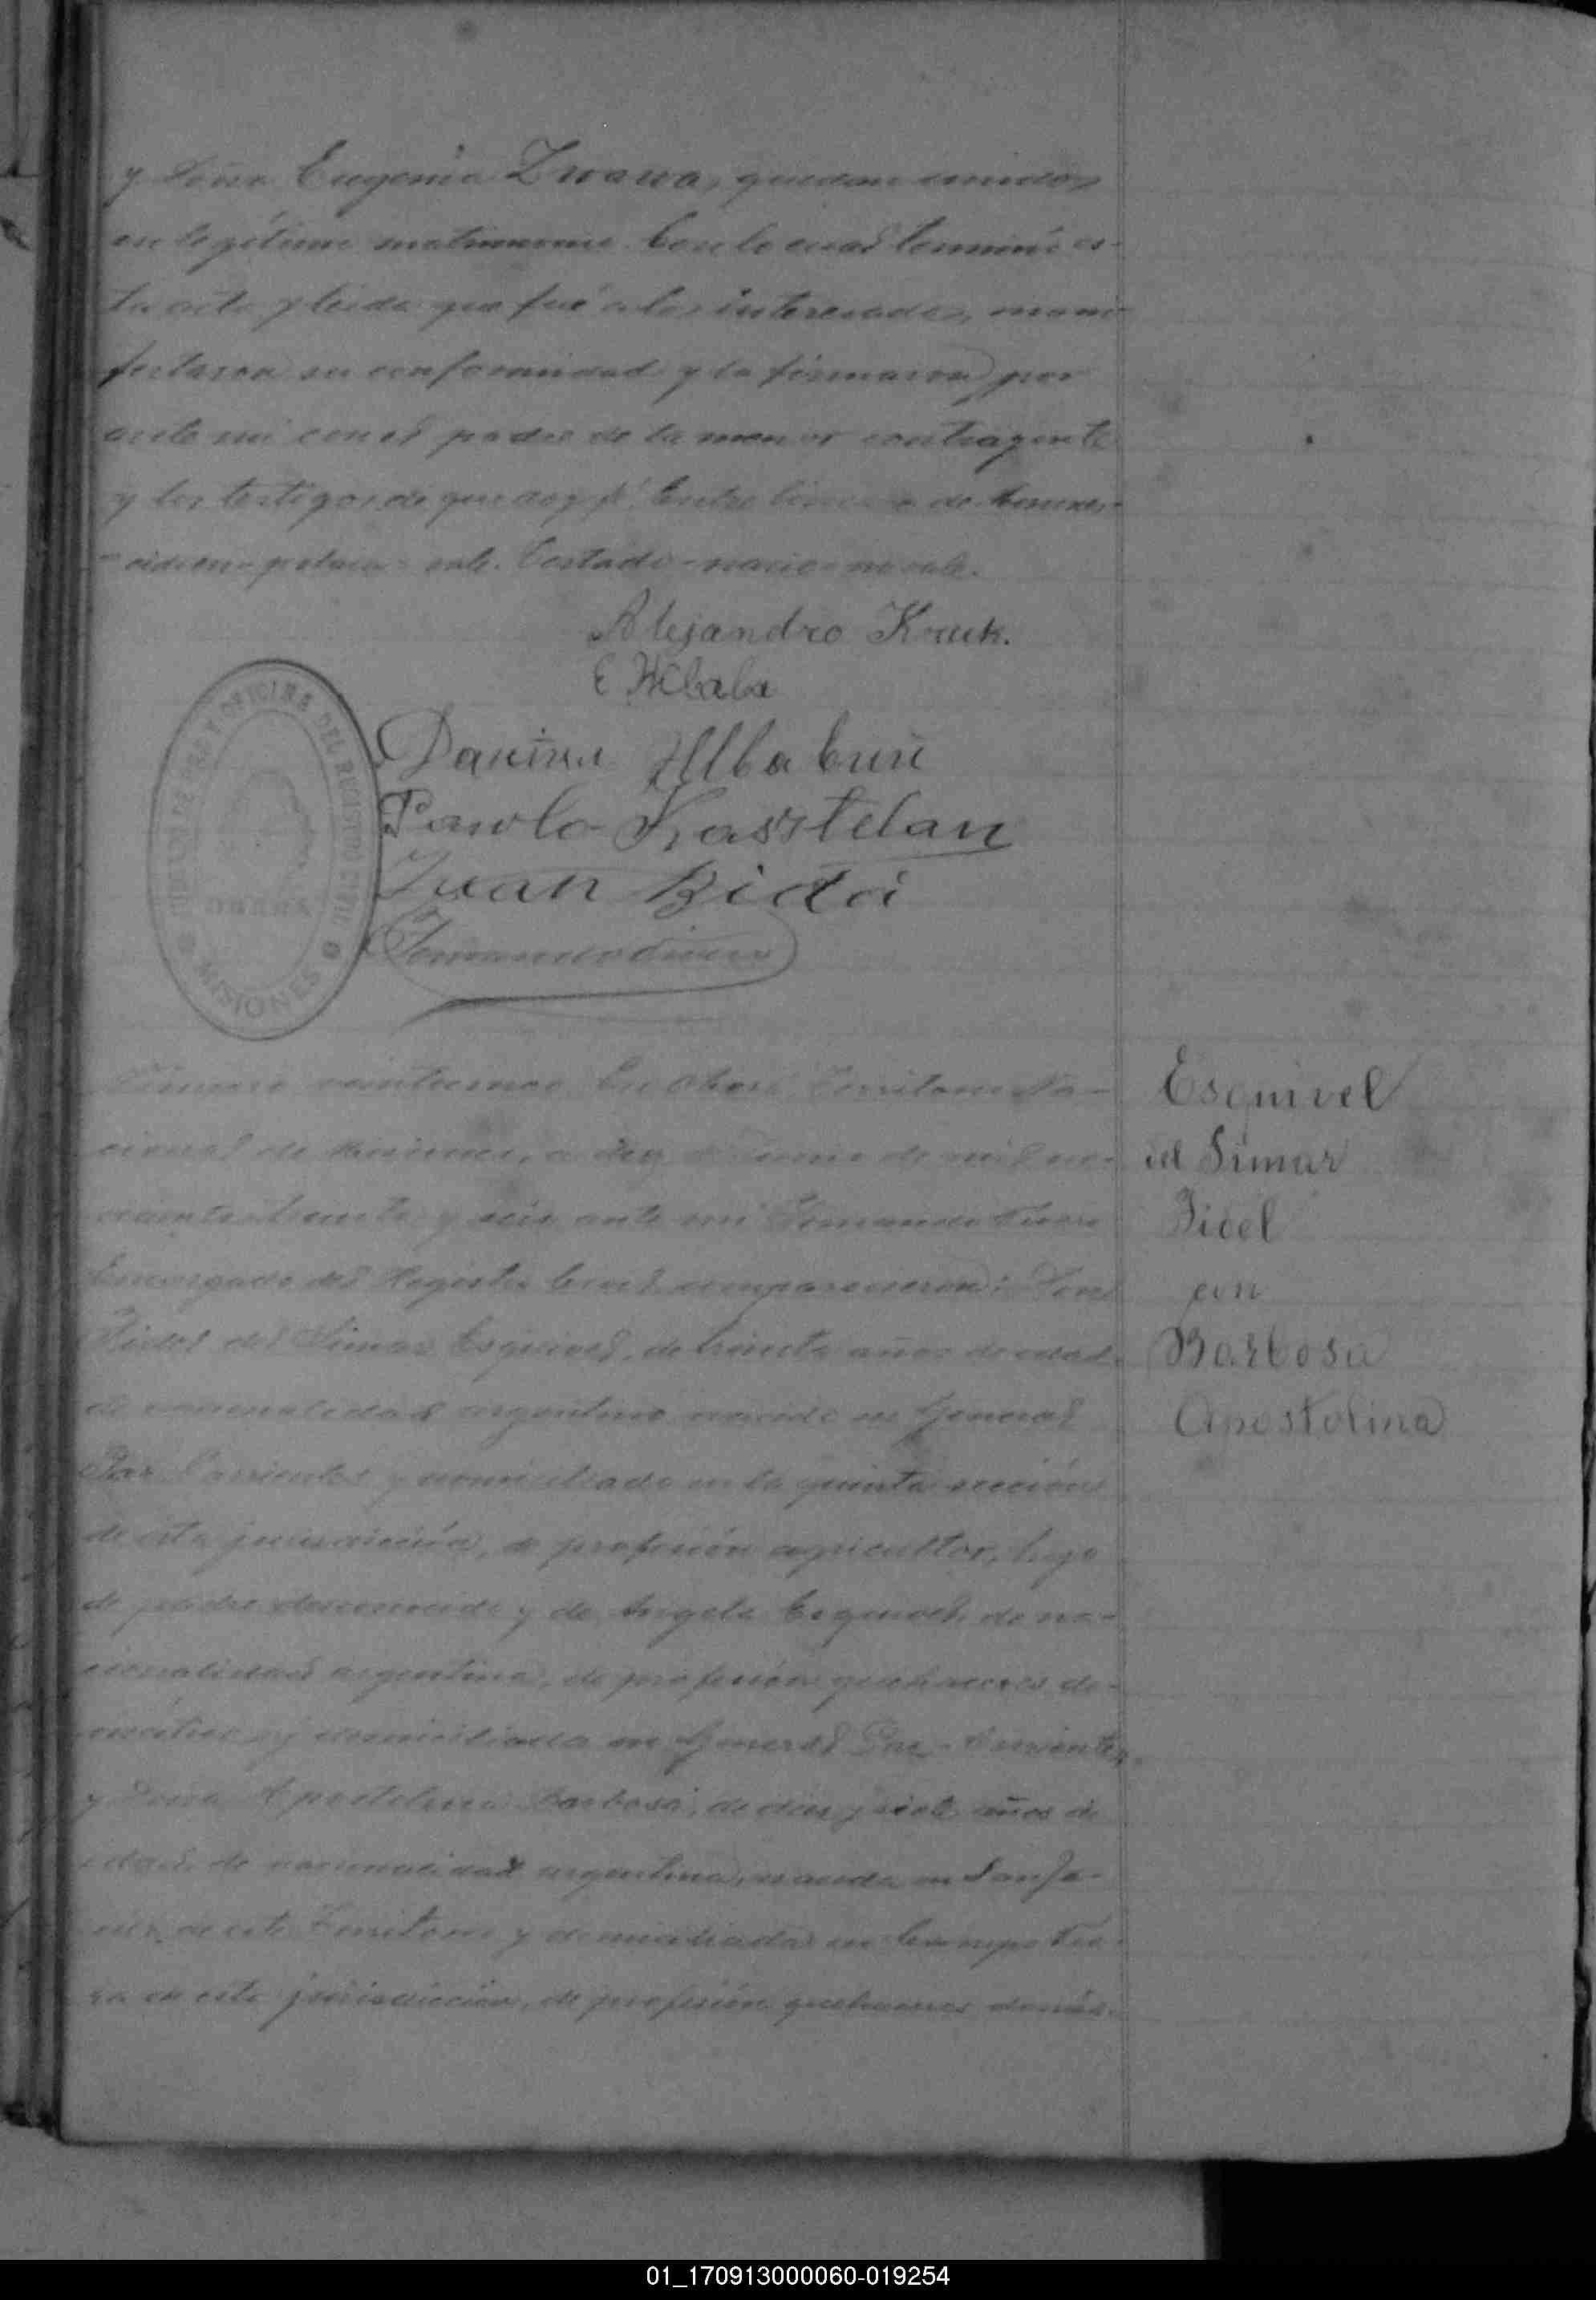 y Doña Eugenia Zwawa, quedan unidos
en legítimo matrimonio. Con lo cual terminó es-
ta acta y leida que fué a los interesados, mani-
festaron su conformidad y la firmaron por
ante mi con el padre de la menor contrayente
y los testigos de que doy fé. Entre líneas de
polaca - vale. Testado - nacio - no vale.
Alejandro Kruk.
E
Pawlo Kasztelan
Juan Bida
OFICINA DEL REGISTRO CIVIL
OBERA
MISIONES
Número veintiuno. En Oberá Territorio Na-
cional de Misiones, a diez de Junio de mil no-
vecientos treinta y seis ante mi
Encargado del Registro Civil comparecieron: Don
Fidel del Simar Esquivel, de treinta años de edad
de nacionalidad argentino nacido en General
Paz, Corrientes y domiciliado en la quinta sección
de esta jurisdicción, de profesión agricultor, hijo
de padre desconocido y de Angela Esquivel, de na-
cionalidad argentina, de profesión quehaceres do-
mésticos y domiciliada en General Paz - Corrientes,
y Doña Apostolina Barbosa, de diez y siete años de
edad, de nacionalidad argentina, nacida en San Ja-
vier, de este Territorio y domiciliada en Campo Vie-
ra en esta jurisdicción, de profesión quehaceres domés-
Esquivel
del Simar
Fidel
con
Barbosa
Apostolina
01_170913000060-019254